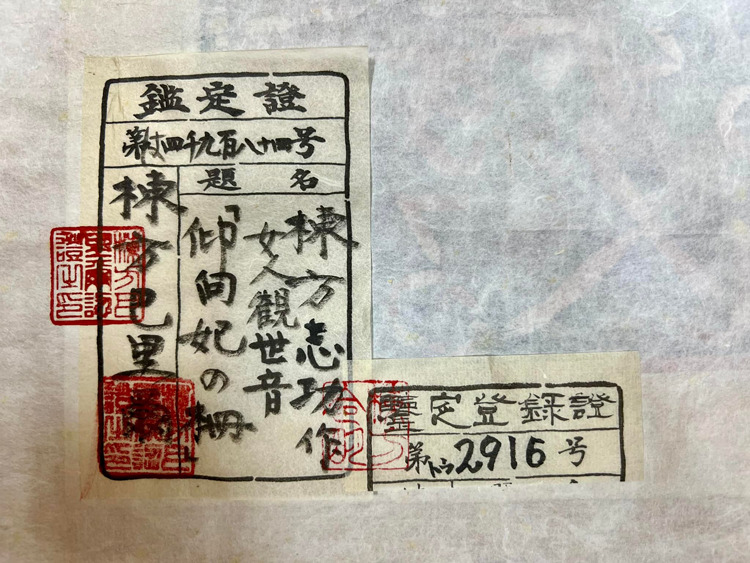 鑑定證
第拾四千九百八十四号
題名
棟方志功作
女人觀世音
「仰向妃の柵」
棟方巴里爾
鑒定登録證
第トウ2916号